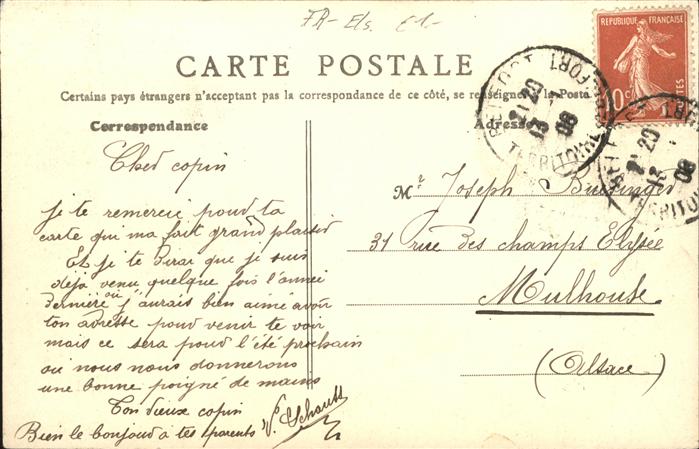 FR-Els. E1.-
CARTE POSTALE
Certains pays étrangers n'acceptant pas la correspondance de ce côté, se renseigner à la Poste
Correspondance
Adresse
RÉPUBLIQUE FRANÇAISE
10c
POSTES
BELFORT
21 20
13
08
TERRITOIRE
BELFORT
20
13
08
TERRITOI
Cher copin
je te remercie pour ta
carte qui ma fait grand plaisir
Et je te dirai que je suis
déjà venu quelque fois l'année
dernière où j'aurais bien aimé avoir
ton adresse pour venir te voir
mais ce sera pour l'été prochain
où nous nous donnerons
une bonne poigné de mains
Ton vieux copin
Bien le bonjour à tes parents
Mr Joseph
31 rue des champs Elysée
Mulhouse
(Alsace)